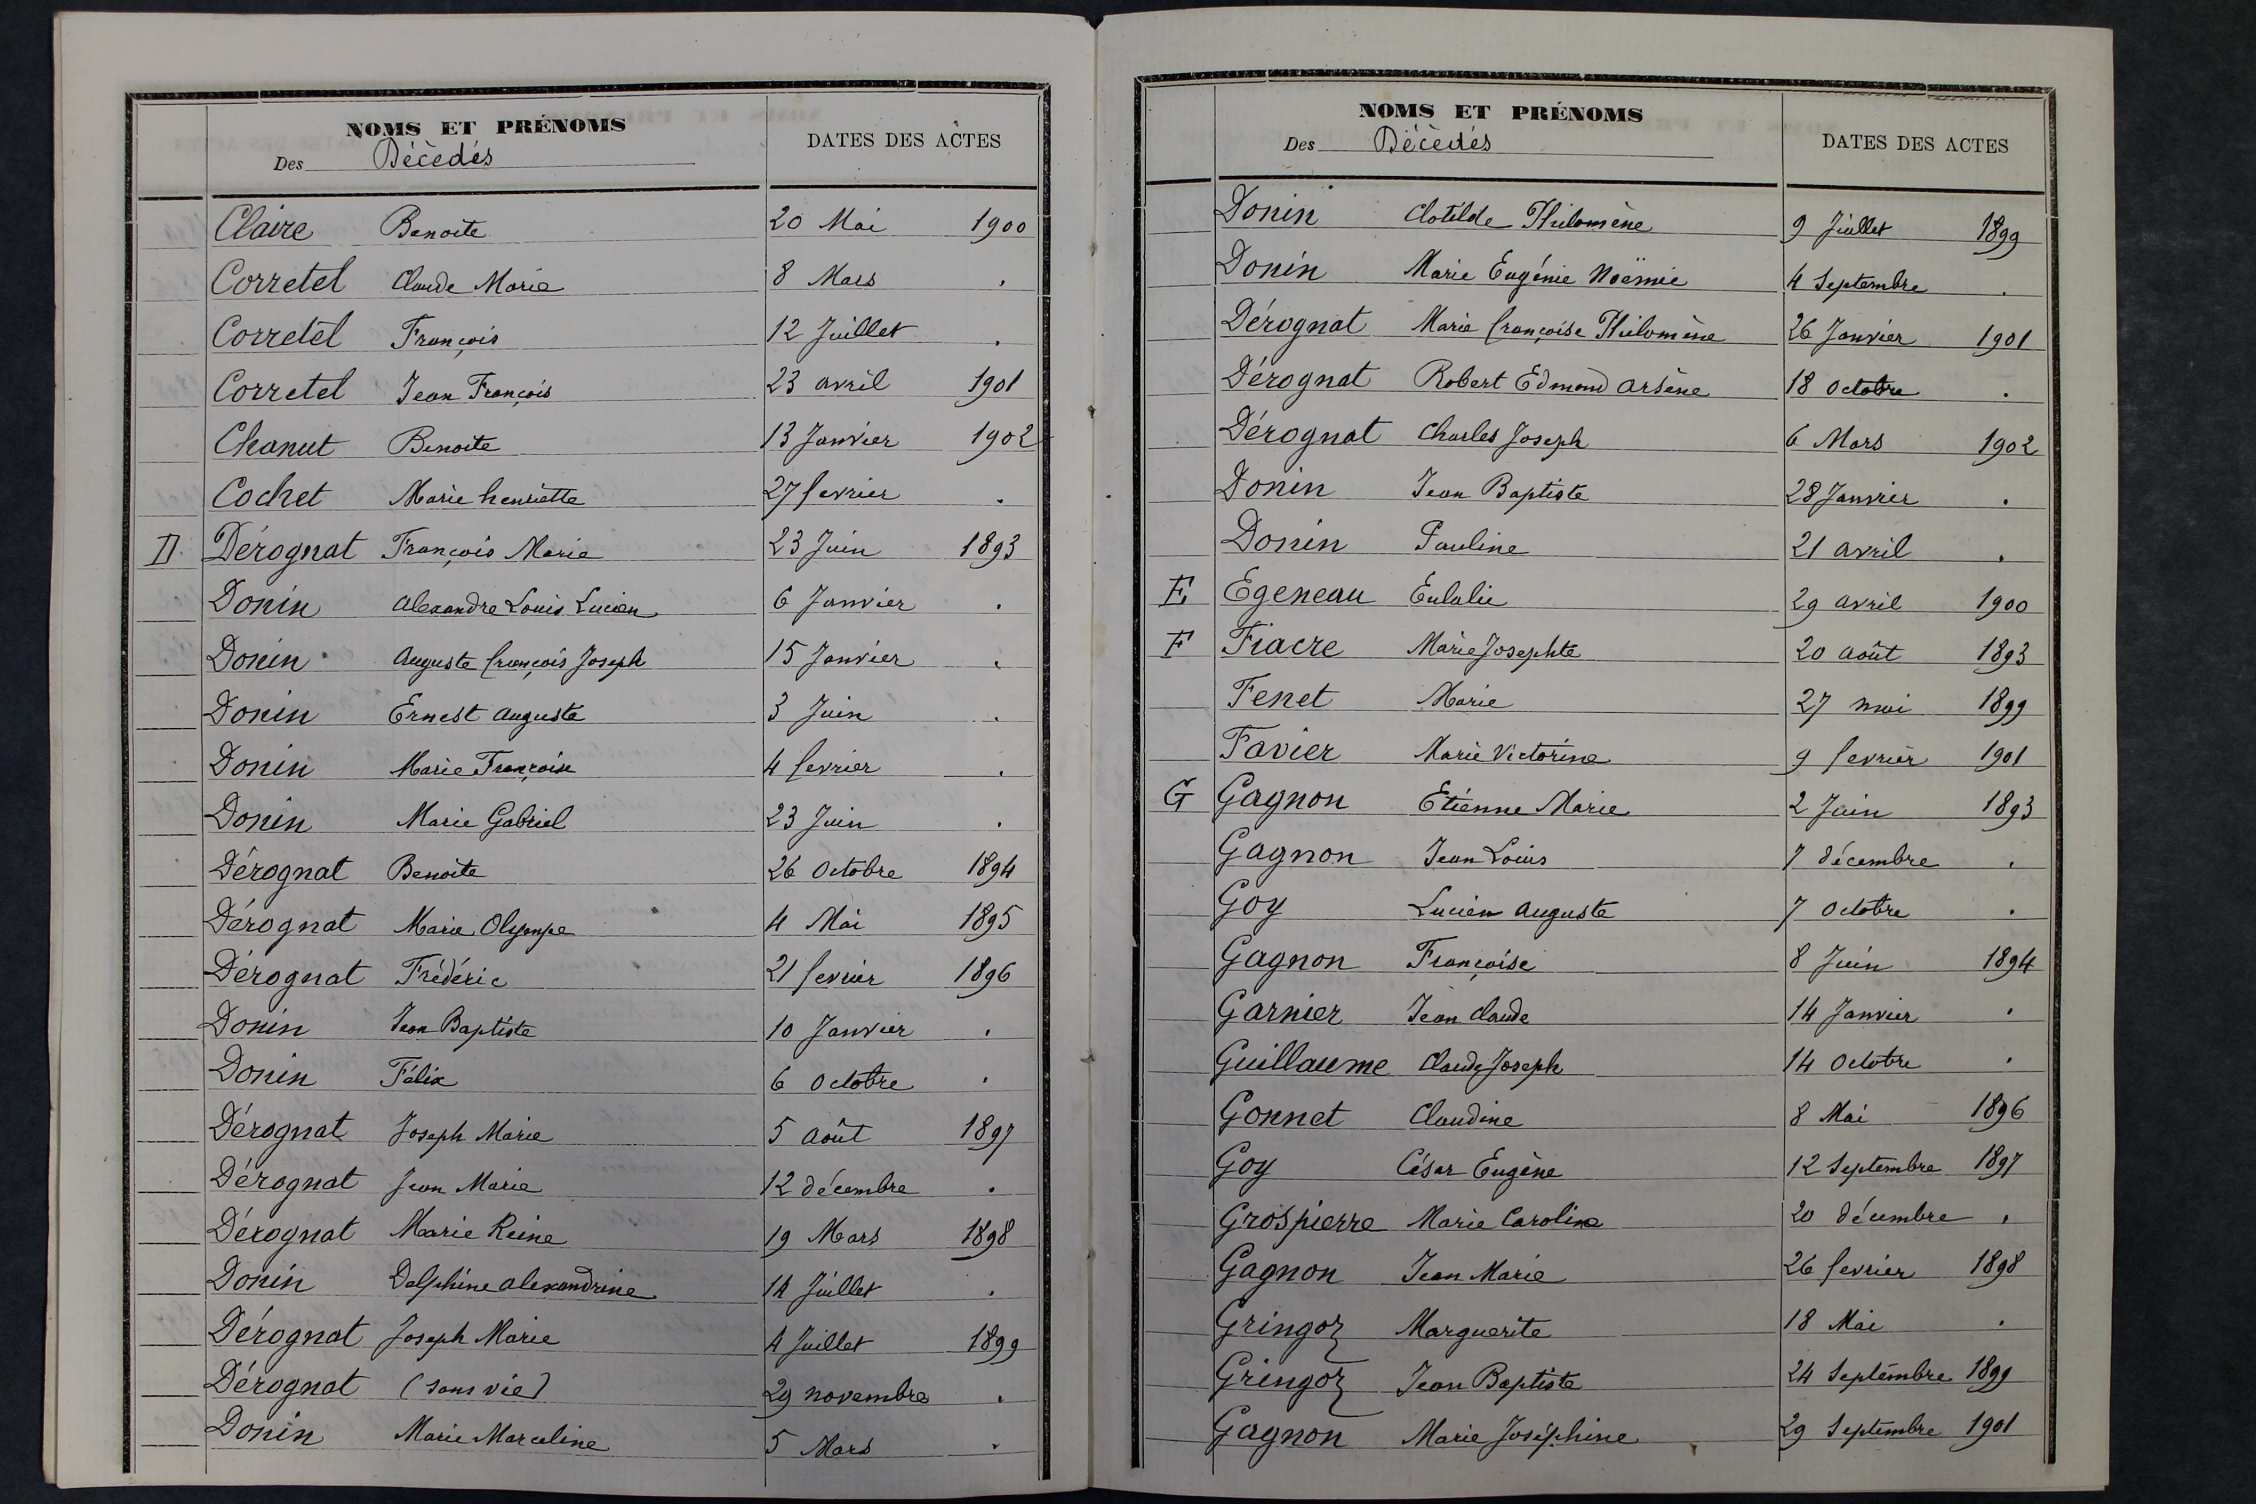 NOMS ET PRÉNOMS
Des Décèdés
DATES DES ACTES
Claire Benoite 20 Mai 1900
Corretel Claude Marie 8 Mars .
Corretel François 12 Juillet .
Corretel Jean François 23 avril 1901
Chanut Benoite 13 Janvier 1902
Cochet Marie henriette 27 fevrier .
D Dérognat François Marie 23 Juin 1893
Donin Alexandre Louis Lucien 6 Janvier .
Donin Auguste françois Joseph 15 Janvier .
Donin Ernest Auguste 3 Juin .
Donin Marie Françoise 4 fevrier .
Donin Marie Gabriel 23 Juin .
Dérognat Benoite 26 Octobre 1894
Dérognat Marie Olympe 4 Mai 1895
Dérognat Frédéric 21 fevrier 1896
Donin Jean Baptiste 10 Janvier .
Donin Félix 6 Octobre .
Dérognat Joseph Marie 5 août 1897
Dérognat Jean Marie 12 décembre .
Dérognat Marie Reine 19 Mars 1898
Donin Delphine alexandrine 14 Juillet .
Dérognat Joseph Marie 4 Juillet 1899
Dérognat (sans vie) 29 novembre .
Donin Marie Marceline 5 Mars .
NOMS ET PRÉNOMS
Des Décèdés
DATES DES ACTES
Donin Clotilde Philomène 9 Juillet 1899
Donin Marie Eugénie Noëmie 4 Septembre .
Dérognat Marie françoise Philomène 26 Janvier 1901
Dérognat Robert Edmond Arsène 18 Octobre .
Dérognat Charles Joseph 6 Mars 1902
Donin Jean Baptiste 28 Janvier .
Donin Pauline 21 avril .
E Egeneau Eulalie 29 avril 1900
F Fiacre Marie Josephte 20 août 1893
Fenet Marie 27 mai 1899
Favier Marie Victorine 9 fevrier 1901
G Gagnon Etienne Marie 2 Juin 1893
Gagnon Jean Louis 7 décembre .
Goy Lucien Auguste 7 Octobre .
Gagnon Françoise 8 Juin 1894
Garnier Jean Claude 14 Janvier .
Guillaume Claude Joseph 14 Octobre .
Gonnet Claudine 8 Mai 1896
Goy César Eugène 12 Septembre 1897
Grospierre Marie Caroline 20 décembre .
Gagnon Jean Marie 26 fevrier 1898
Gringoz Marguerite 18 Mai .
Gringoz Jean Baptiste 24 Septembre 1899
Gagnon Marie Joséphine 29 Septembre 1901